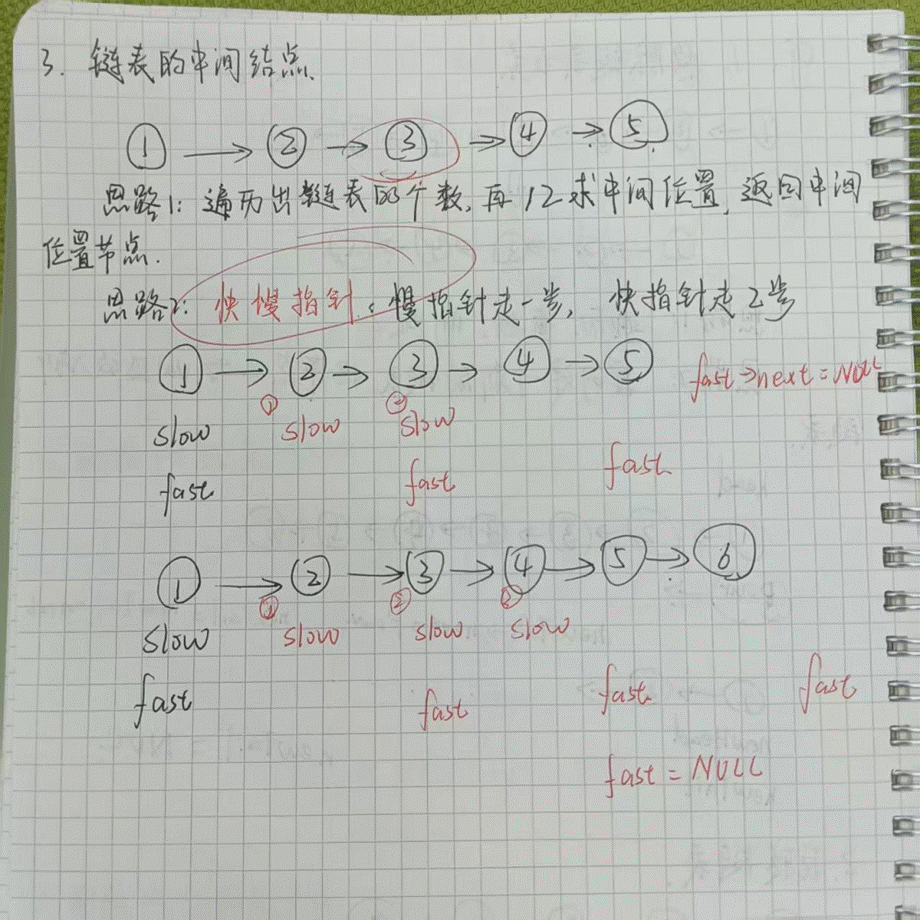 3. 链表的中间结点.
① → ② → ③ → ④ → ⑤
思路1: 遍历出链表的个数, 再/2求中间位置, 返回中间
位置节点.
思路2: 快慢指针: 慢指针走一步, 快指针走2步
① → ② → ③ → ④ → ⑤ fast→next=NULL
① ②
slow slow slow
fast fast fast
① → ② → ③ → ④ → ⑤ → ⑥
① ② ③
slow slow slow slow
fast fast fast fast
fast = NULL